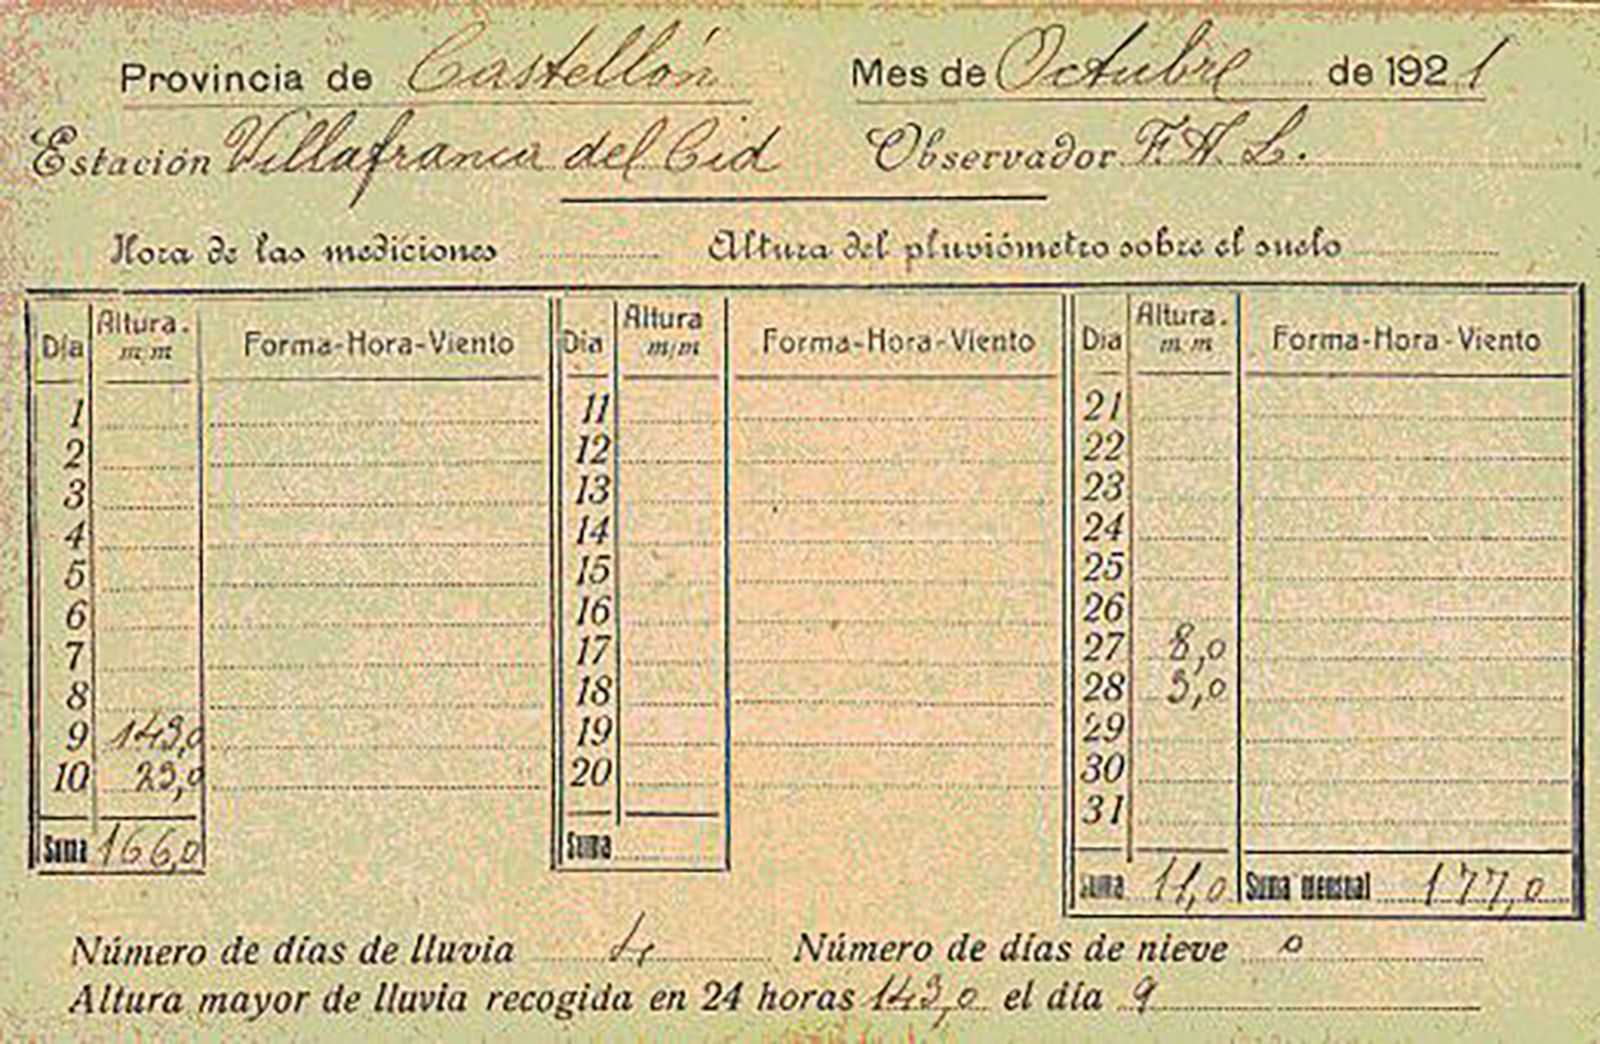 Provincia de Castellón Mes de Octubre de 1921
Estación Villafranca del Cid Observador F. H. L.
Hora de las mediciones Altura del pluviómetro sobre el suelo
Día Altura. m/m Forma-Hora-Viento Día Altura m/m Forma-Hora-Viento Día Altura. m m Forma-Hora-Viento
1 11 21
2 12 22
3 13 23
4 14 24
5 15 25
6 16 26
7 17 27 8,0
8 18 28 3,0
9 143,0 19 29
10 23,0 20 30
31
Suma 166,0 Suma Suma 11,0 Suma mensual 177,0
Número de días de lluvia 4 Número de días de nieve 0
Altura mayor de lluvia recogida en 24 horas 143,0 el día 9